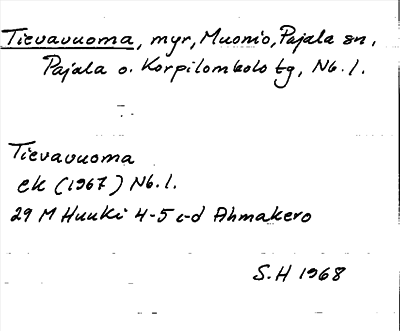 Tievavuoma, myr, Muonio, Pajala sn,
Pajala o. Korpilombolo tg, Nb. l.
Tievavuoma
ek (1967) Nb. l.
29 M Huuki 4-5 c-d Ahmakero
S.H 1968